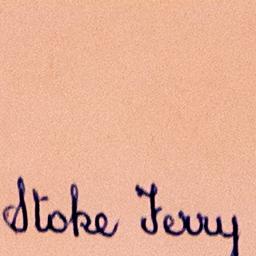 Stoke Ferry